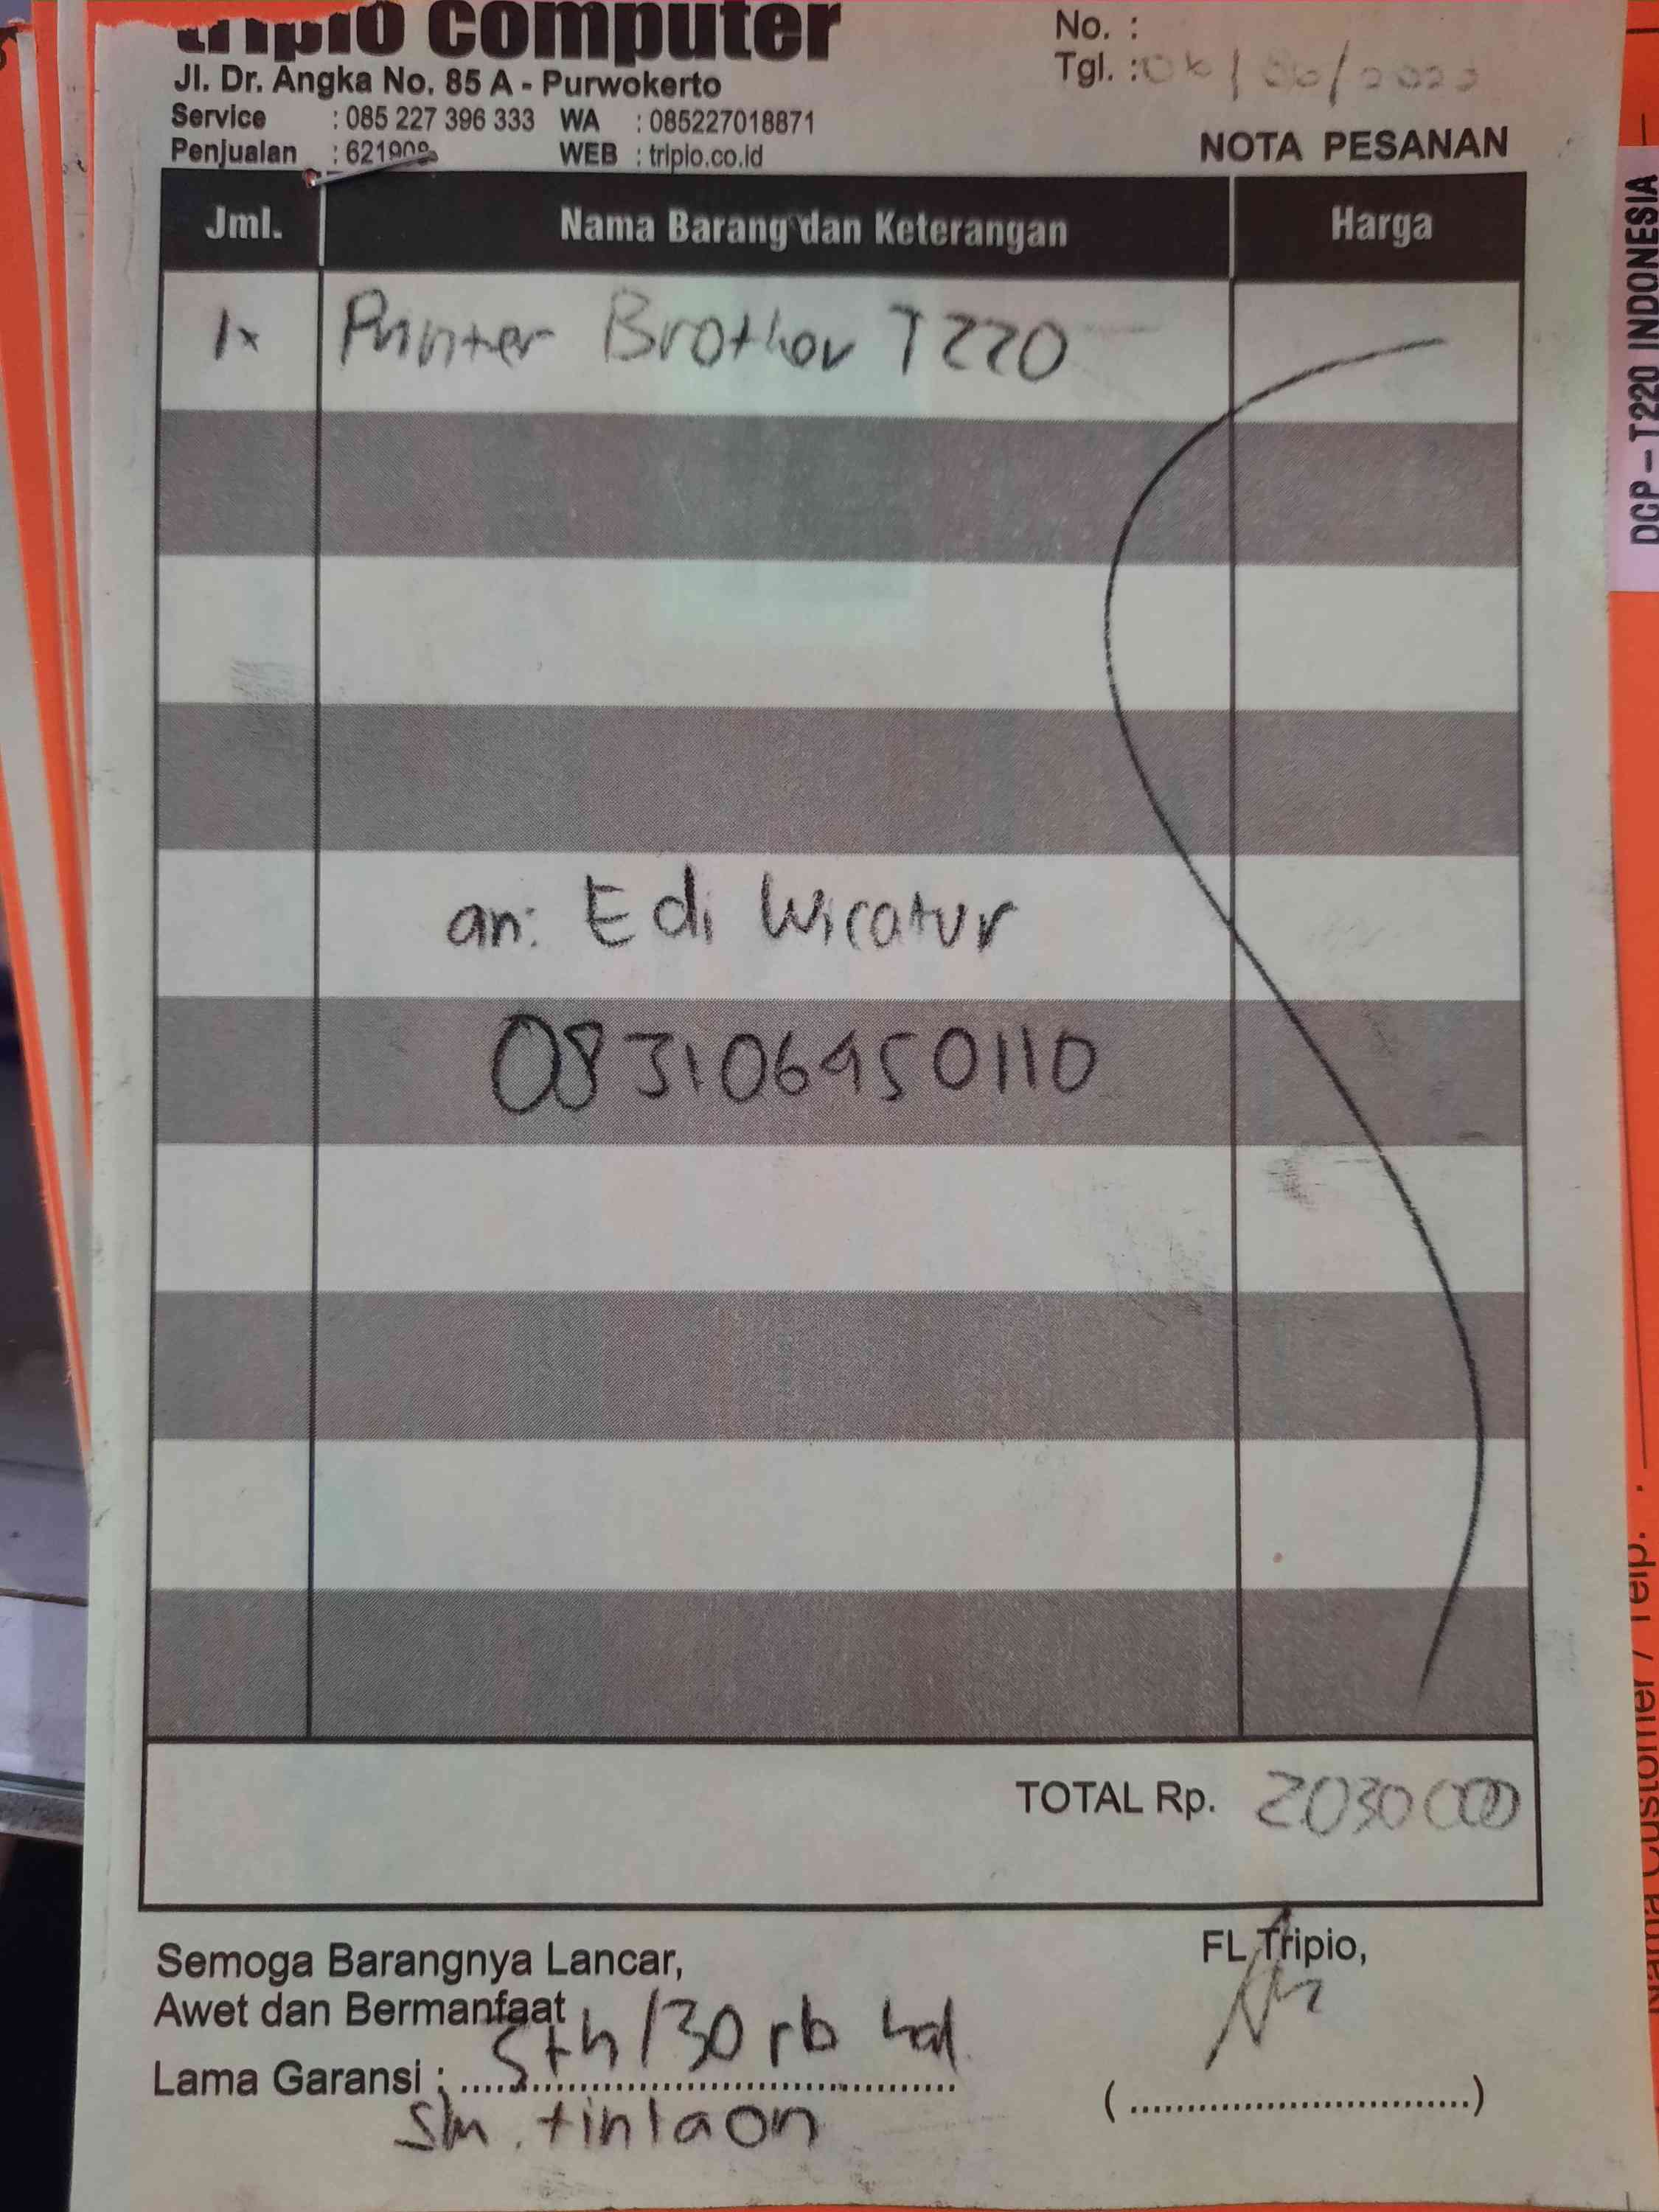 tripio computer
Jl. Dr. Angka No. 85 A - Purwokerto
Service : 085 227 396 333 WA : 085227018871
Penjualan : 621909 WEB : tripio.co.id
No. :
Tgl. :
NOTA PESANAN
Jml. Nama Barang dan Keterangan Harga
1x Printer Brother T220
an: Edi Wicatur
083106450110
TOTAL Rp. 2030000
Semoga Barangnya Lancar,
Awet dan Bermanfaat
Lama Garansi : 5th/30 rb hal
FL Tripio,
(..............................)
DCP – T220 INDONESIA
Nama Customer / Telp.